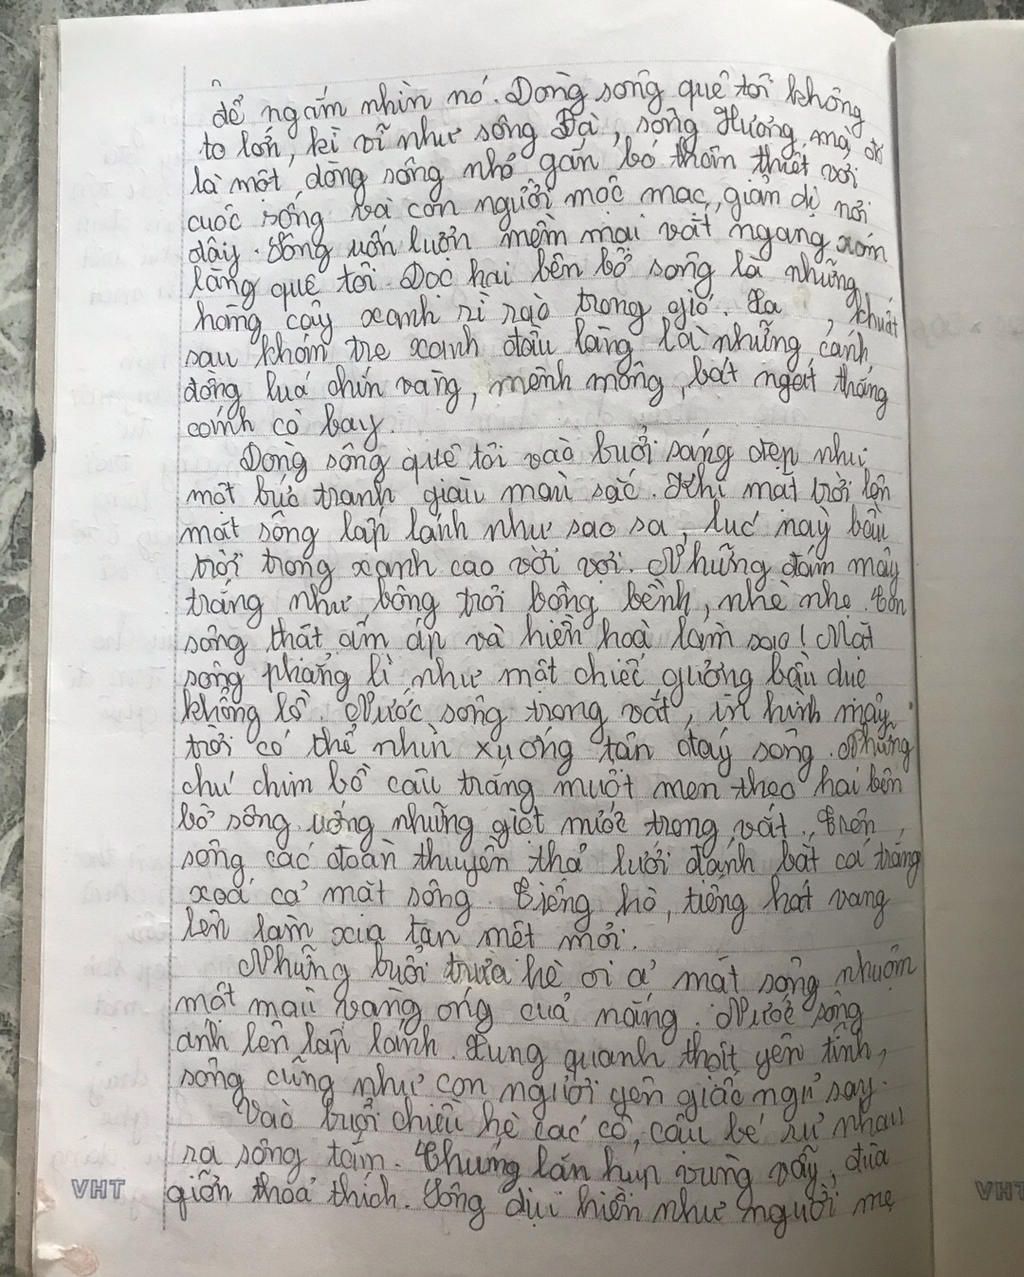 để ngắm nhìn nó. Dòng sông quê tôi không
to lớn, kì vĩ như sông Đà, sông Hương, mà đó
là một dòng sông nhỏ gắn bó thân thiết với
cuộc sống và con người mộc mạc, giản dị nơi
đây. Sông uốn lượn mềm mại vắt ngang xóm
làng quê tôi. Dọc hai bên bờ sông là những
hàng cây xanh rì rào trong gió. Xa, khuất
sau khóm tre xanh đầu làng là những cánh
đồng luá chín vàng, mênh mông, bát ngát thẳng
cánh cò bay.
Dòng sông quê tôi vào buổi sáng đẹp như
một bức tranh giàu màu sắc. Khi mặt trời lên
mặt sông lấp lánh như sao sa, lúc này bầu
trời trong xanh cao vời vợi. Những đám mây
trắng như bông trôi bồng bềnh, nhè nhẹ.
sông thật ấm áp và hiền hoà làm sao! Mặt
sông phẳng lì như một chiếc gương bầu dục
khổng lồ. Nước sông trong vắt, in hình mây
trời có thể nhìn xuống tận đáy sông. Những
chú chim bồ câu trắng muốt men theo hai bên
bờ sông uống những giọt nước trong vắt. Trên
sông các đoàn thuyền thả lưới đánh bắt cá trắng
xoá cả mặt sông. Tiếng hò, tiếng hát vang
lên làm xua tan mệt mỏi.
Những buổi trưa hè oi ả mặt sông nhuộm
một màu vàng óng cuả nắng. Nước sông
ánh lên lấp lánh. Xung quanh thật yên tĩnh,
sông cũng như con người yên giấc ngủ say.
Vào buổi chiều hè các cô, cậu bé rủ nhau
ra sông tắm. Chúng lặn hụp vùng vẫy, đùa
giỡn thoả thích. Sông dịu hiền như người mẹ
VHT
VHT